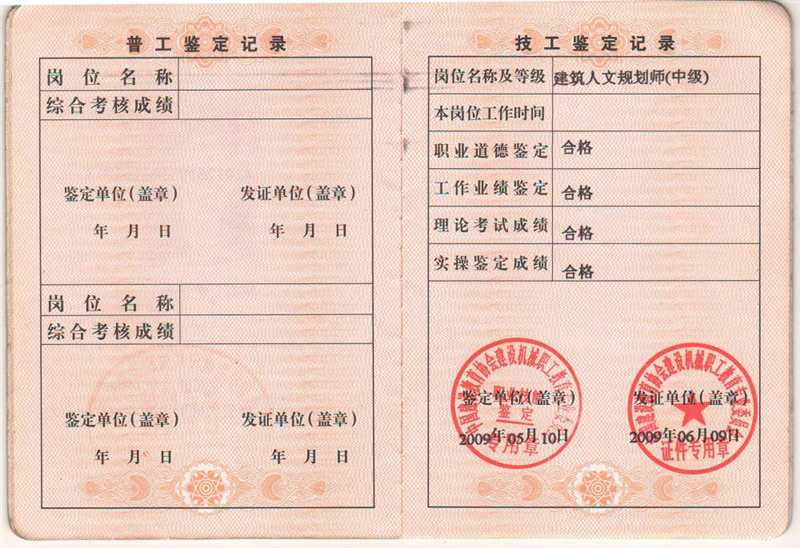 普工鉴定记录
岗位名称
综合考核成绩
鉴定单位(盖章) 发证单位(盖章)
年 月 日 年 月 日
岗位名称
综合考核成绩
鉴定单位(盖章) 发证单位(盖章)
年 月 日 年 月 日
技工鉴定记录
岗位名称及等级 建筑人文规划师(中级)
本岗位工作时间
职业道德鉴定 合格
工作业绩鉴定 合格
理论考试成绩 合格
实操鉴定成绩 合格
中国建设教育协会建设机械职工教育专业委员会
职业技能
鉴定
专用章
鉴定单位(盖章)
2009年05月10日
中国建设教育协会建设机械职工教育专业委员会
证件专用章
发证单位(盖章)
2009年06月09日